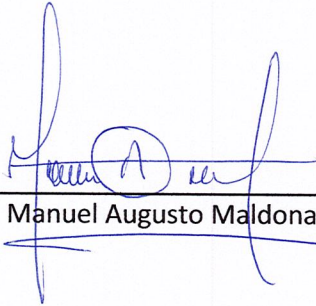 Manuel Augusto Maldona